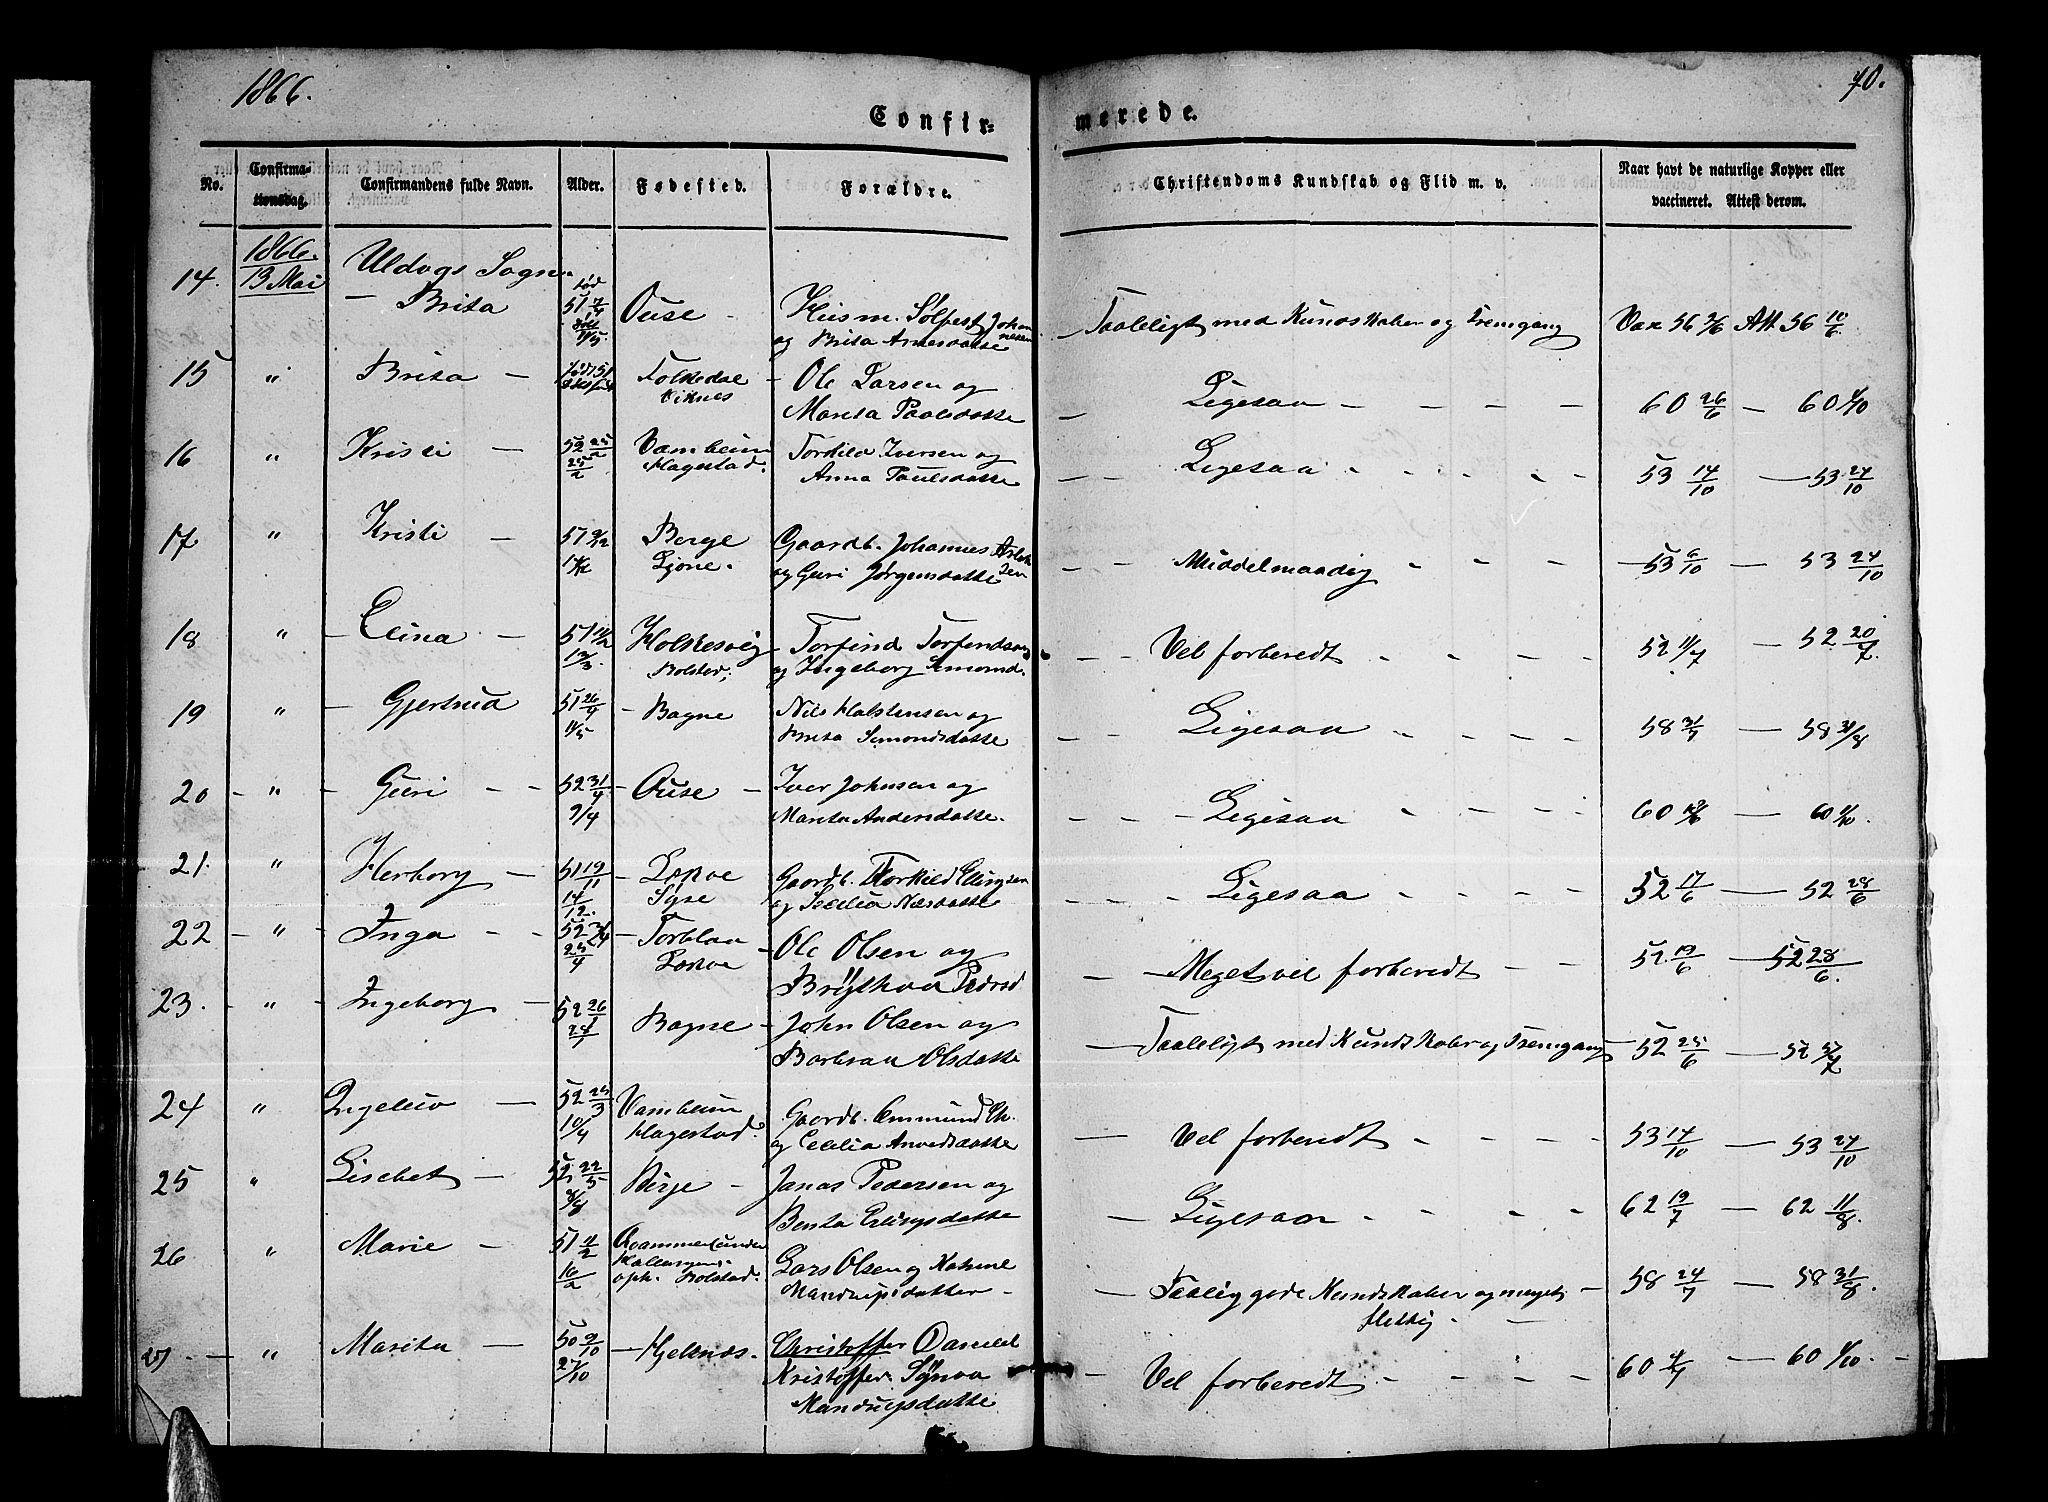 1866.
70.
Confir=
merede.
No.
Confirma=
tionsdag.
Confirmandens fulde Navn.
Alder.
Fødested.
Forældre.
Christendoms Kundskab og Flid m. v.
Naar havt de naturlige Kopper eller
vaccineret. Attest derom.
1866.
13 Mai
Uldvigs Sogn.
14. — Brita født 51 7/4 Ouse — Huusm. Sølfest Johan
nesen
og Brita Arnesdatte
Taaleligt med Kundskaber og Fremgang
Vax 56 2/6 Att 56 10/6
15 " Brita — Folkedal — Ole Larsen og
Viknes Marita Paalsdatte
— Ligesaa — — — — 60 26/6 — 60 1/10
16 " Kristi — 52 25/2 Vambheim Tordild Iversen og
Hagestad. Anna Paulsdatte
— — Ligesaa - - - - 53 14/10 — 53 24/10
17 " Kristi — 51 9/12 Berge Gaardb. Johannes Aslak
sen
Ljone. og Guri Jørgensdatte
— — Middelmaadig — — — — 53 6/10 — 53 24/10
18 " — Elina — 51 11/2 Holkesvig Torfind Torfindsen
13/3. Bolstad; og Ingeborg Simond.
— — Vel forberedt - - - - 52 11/7 — 52 20/7.
19 " — Gjertrud 51 26/4 — Bagne Nils Halstensen og
11/5 Brita Simondsdatte
— — Ligesaa - - - - 58 31/7 — 58 31/8
20 — " — Guri — — 52 31/4 — Ouse — Iver Johnsen og
9/4 Marita Andersdatte.
— — — Ligesaa - - - 60 — 60 1/10.
21. " Herborg — 51 19/11 — Lekve Gaardb. Torkild Ellingsen
14/12. Syse og Cecilia Nilsdatte
- - - Ligesaa - - - 52 17/6 — 52 28/6
22 — " — Inga — — 52 — Torblaa — Ole Olsen og
25/4 Lekve Brythva Pedersd
— — Megetvel forberedt — — 52 19/6 — 52 28/6.
23. — " — Ingeborg — 52 26/1 Bagne — John Olsen og
Barbraa Olsdatte
— Taaleligt med Kundskaber og Fremgang 52 25/6 — 52 5/7
24 " Ingeleiv — 52 25/3 Vambheim Gaardb. Ommund
10/4 Hagestad. og Cecilia Arvedsdatte
— Vel forberedt - - - - 53 14/10 — 53 24/10
25 " Lisebet — 52 22/5 Berje — Jonas Pedersen og
Benta Erlingsdatte
— Ligesaa - - - - 62 19/7 — 62 11/8.
26 " Marie — 51 11/2
16/2 oph. Bolstad. Lars Olsen og Katrine
Mandrupsdatter —
— Taalig gode Kundskaber og meget — 58 24/7 — 58 31/8.
flittig. —
27 . — " Marita — 50 9/10 — Hjelnæs. Christoffer Daniel
27/10 Kristoffer. Synva
Mandrupsdatte
— Vel forberedt - - - - 60 4/7 — 60 1/10. —